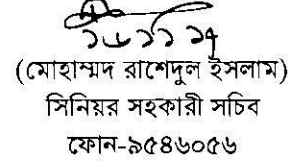 ১৬।১১।১৭
(মোহাম্মদ রাশেদুল ইসলাম)
সিনিয়র সহকারী সচিব
ফোন-৯৫৪৬০৫৬